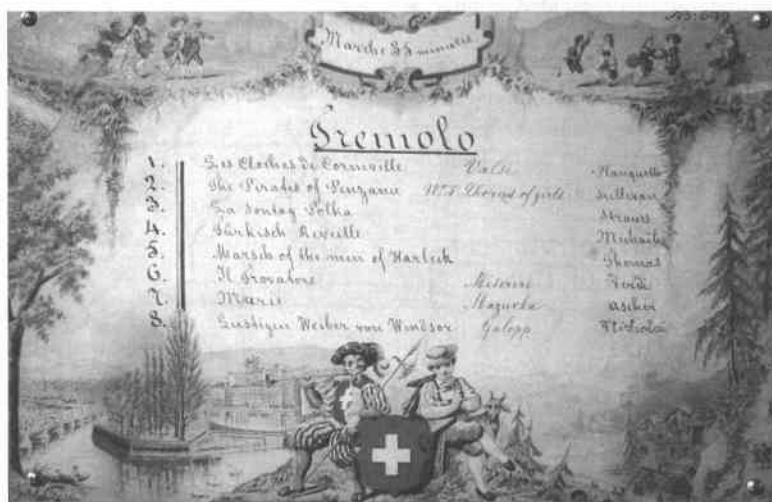 Marche 35 minutes
Tremolo
1. Les Cloches de Corneville Valse Planquette
2. The Pirates of Penzance No. 5 Chorus of girls Sullivan
3. La Sontag Polka Strauss
4. Türkisch Reveille Michaelis
5. March of the men of Harlech Thomas
6. Il Trovatore Miserere Verdi
7. Marie Mazurka Ascher
8. Lustigen Weiber von Windsor Galopp Nicholai